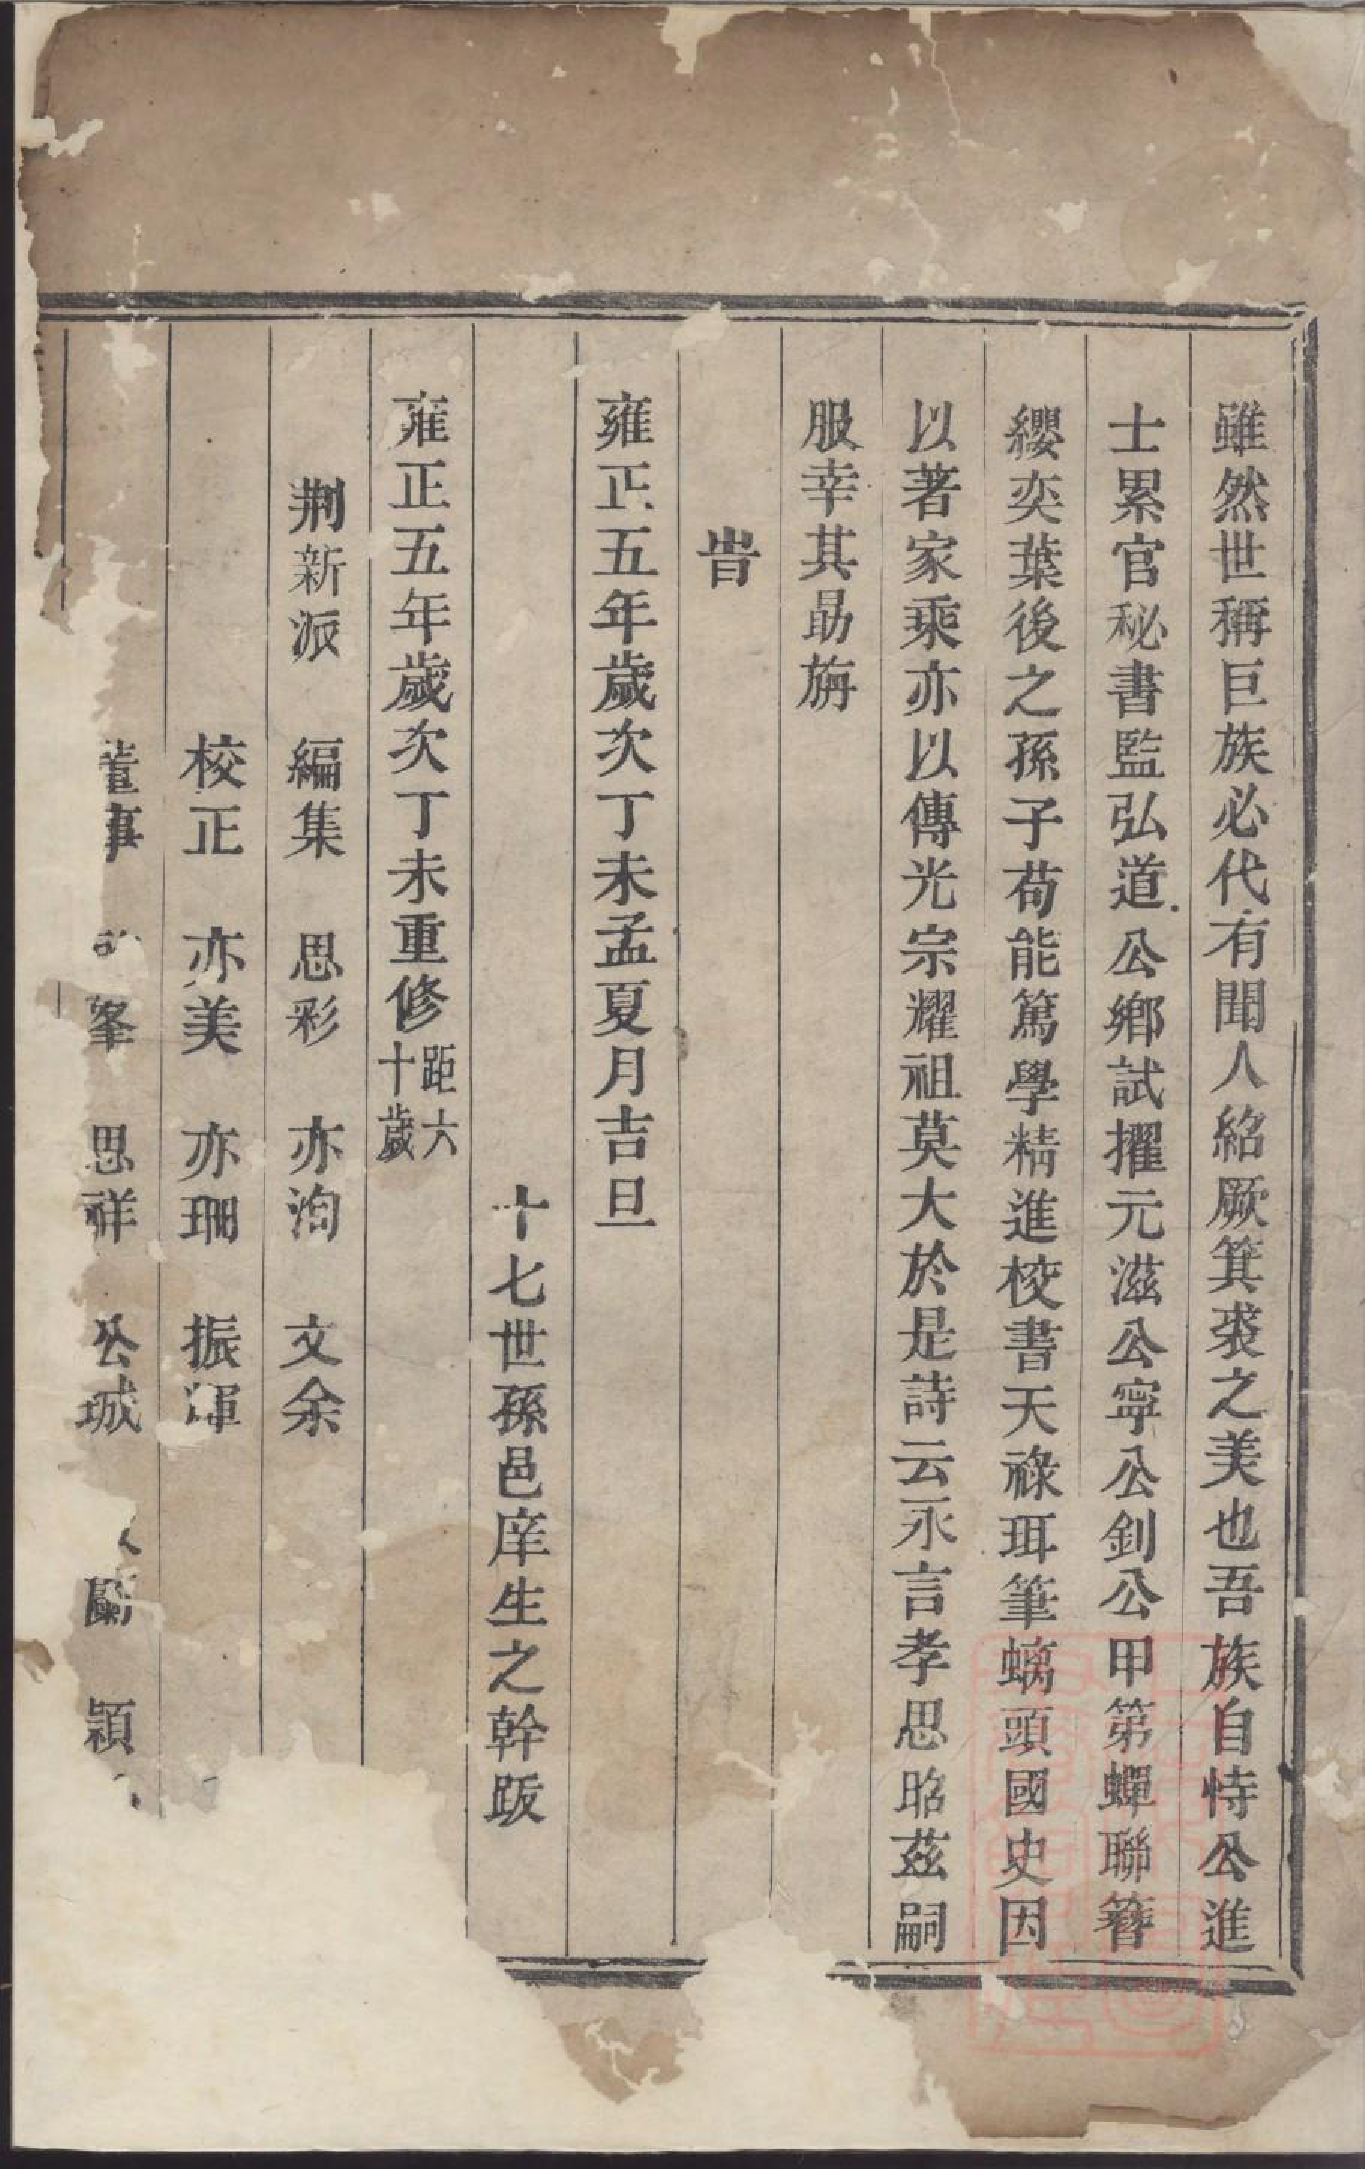 雖然世稱巨族必代有聞人紹厥箕裘之美也吾族自恃公進
士累官秘書監弘道公鄉試擢元滋公寧公釗公甲第蟬聯簪
纓奕葉後之孫子苟能篤學精進校書天祿珥筆螭頭國史因
以著家乘亦以傳光宗耀祖莫大於是詩云永言孝思昭茲嗣
服幸其勗旃
旹
雍正五年歲次丁未孟夏月吉旦
十七世孫邑庠生之幹跋
雍正五年歲次丁未重修距六十歲
荆新派 編集 思彩 亦洵 文余
校正 亦美 亦珊 振渾
董事 峯 思祥 公城 蘭 穎